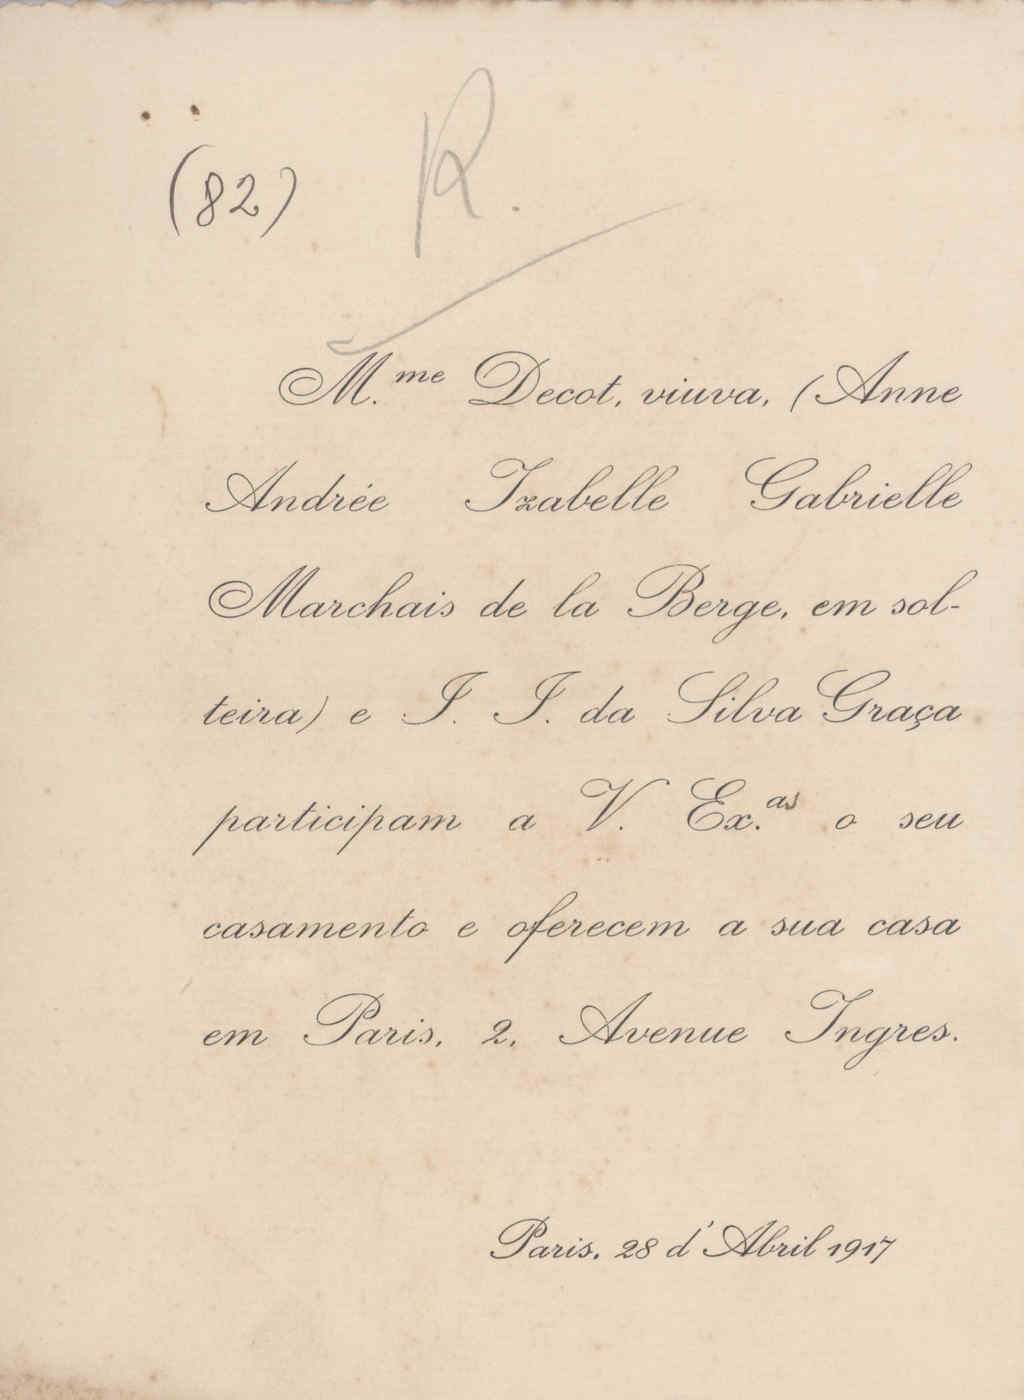 (82) R.
M.me Decot, viuva, (Anne
Andrée Izabelle Gabrielle
Marchais de la Berge, em sol-
teira) e J. J. da Silva Graça
participam a V. Ex.as o seu
casamento e oferecem a sua casa
em Paris, 2, Avenue Ingres.
Paris, 28 d'Abril 1917